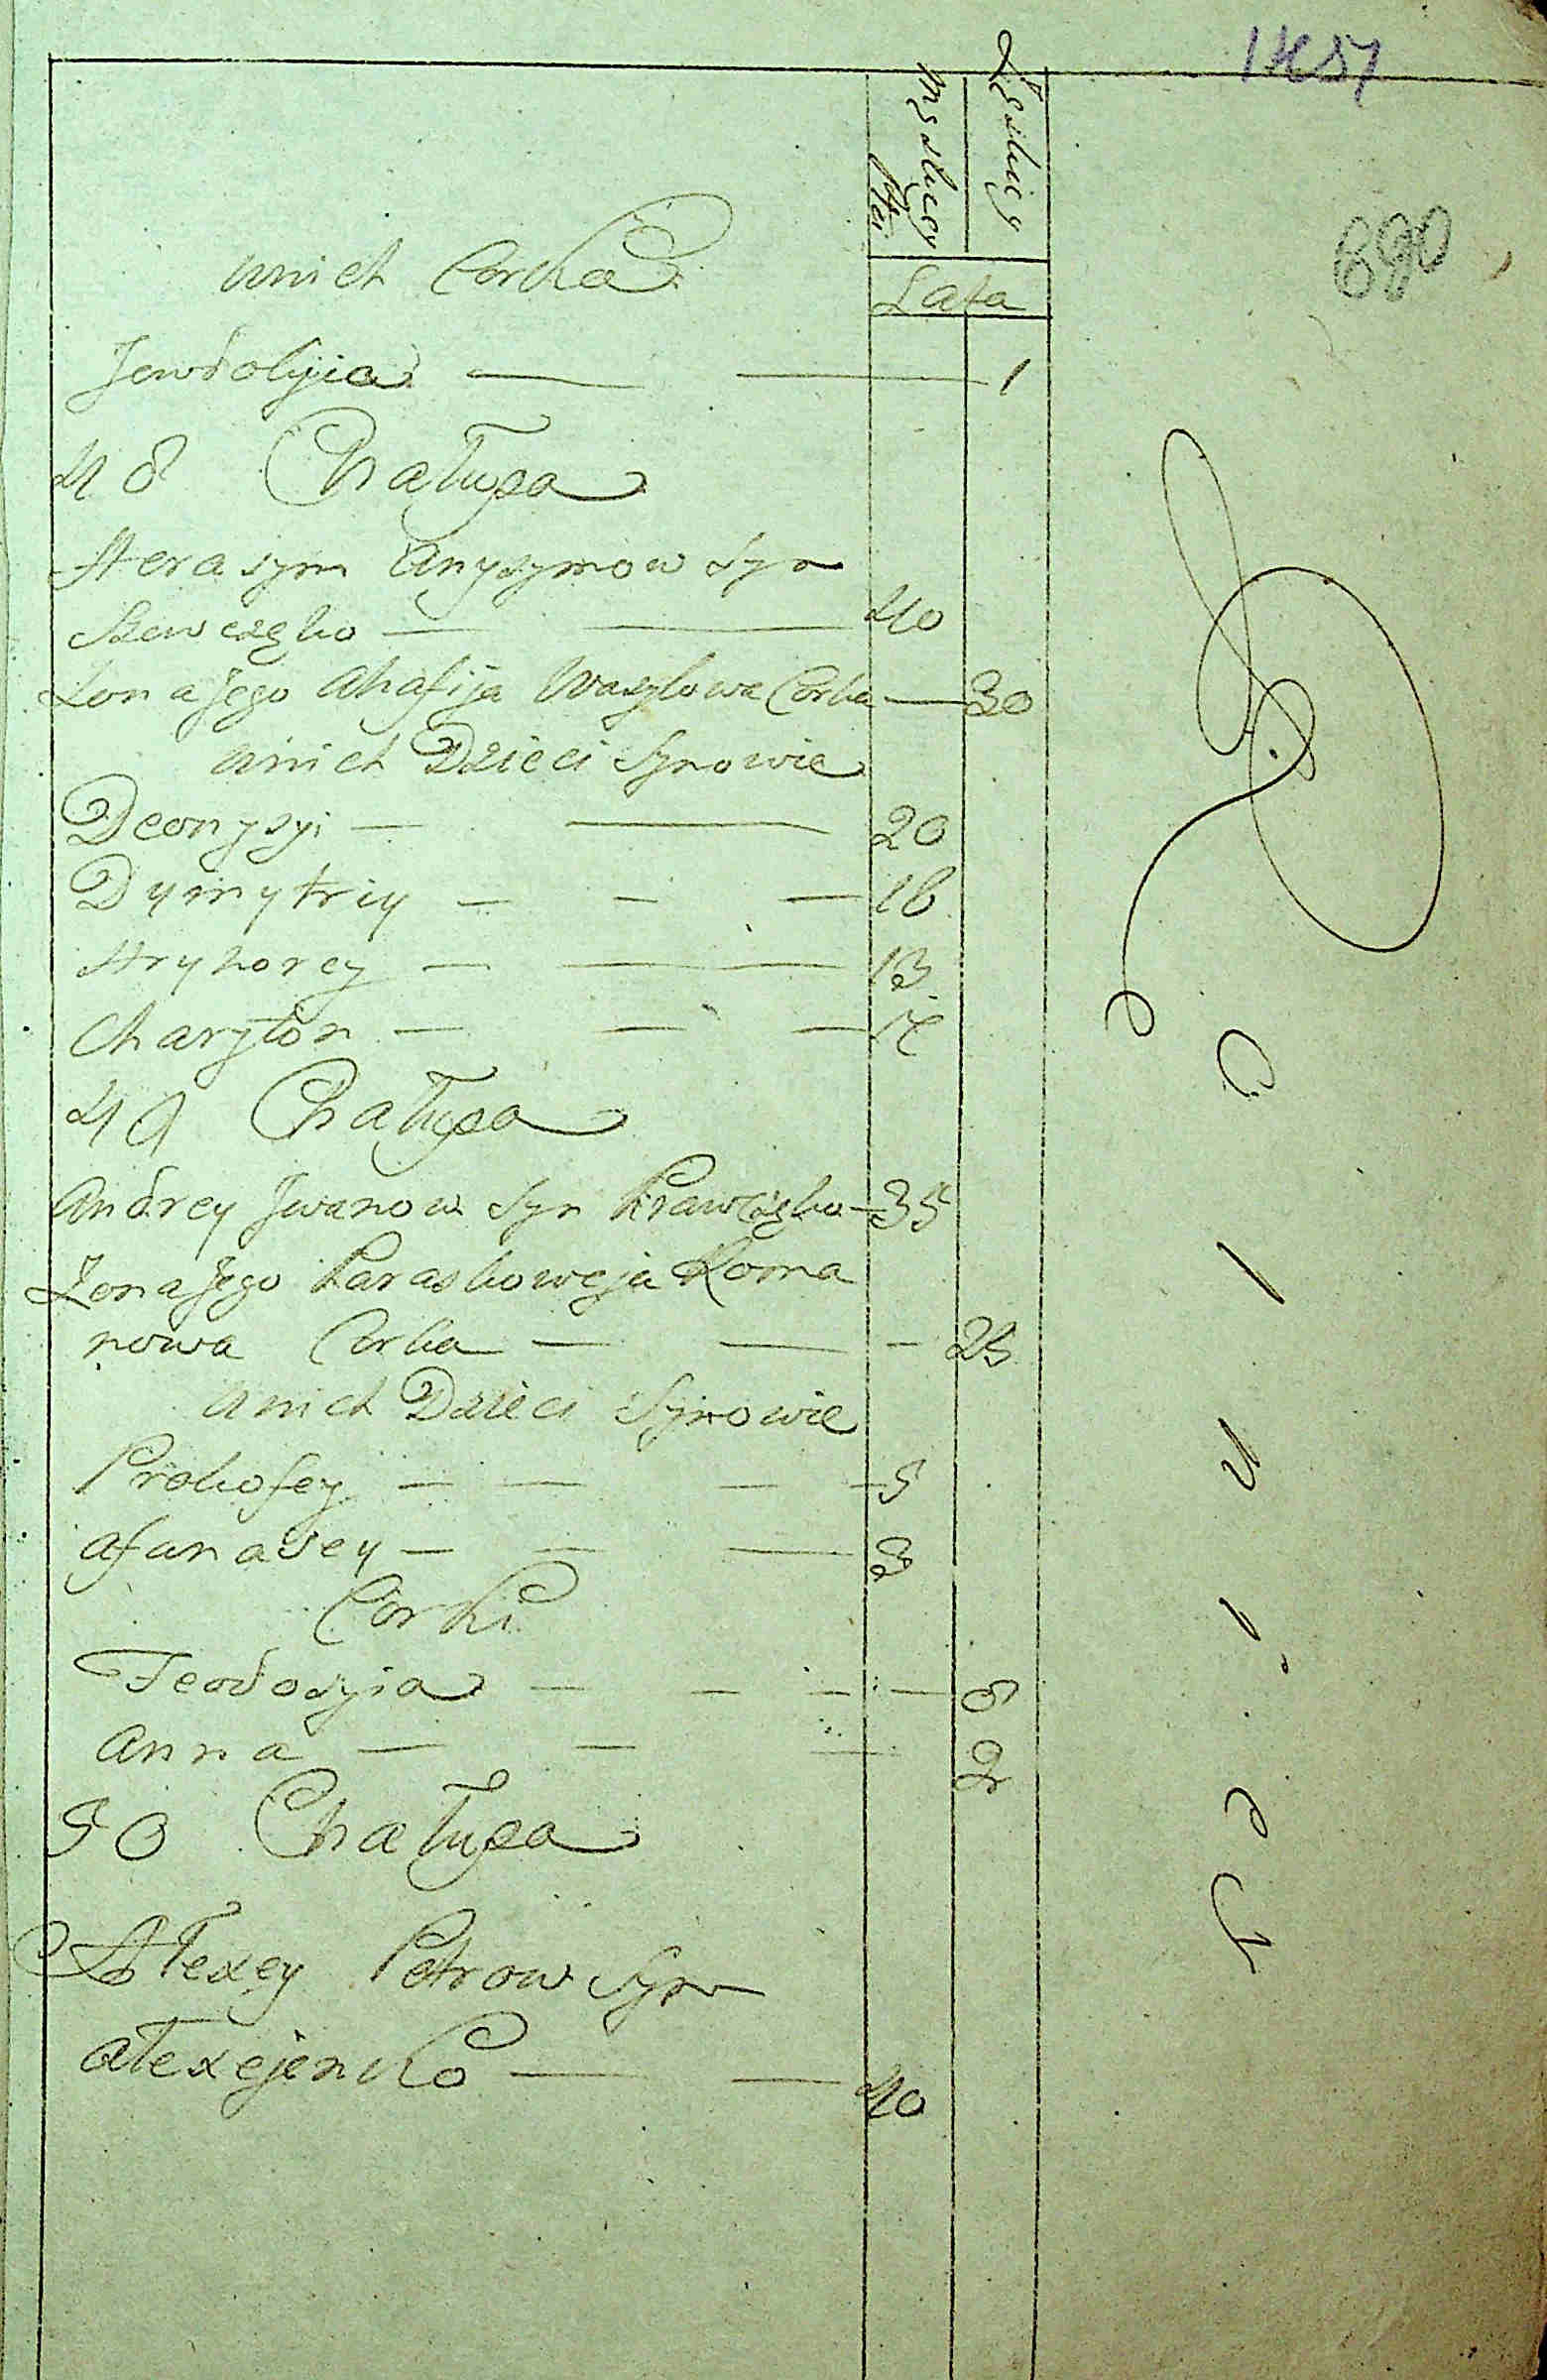 Męskiey
Płci
Żeskiey
Lata
unich Corka
Jewdokija — — 1
48 Chałupa
Herasym Anysymow Syn
Szewczęko — — 40
Żona Jego Ahafija Wasylowa Corka — 30
unich Dzieci Synowie
Deonysyi — — 20
Dymytriy — — — 16
Hryhorey — — — 13
Charyton — — —
49 Chałupa
Andrey Jwanow Syn Krawczęko — 35
Żona Jego Paraskoweja Roma
nowa Corka — — — 25
unich Dzieci Synowie
Prokofey — — — — 5
Afanasey — — — 3
Corki
Teodosyia — — — — 8
Anna — — — 2
50 Chałupa
Alexey Petrow Syn
Alexejenko — — 40
690